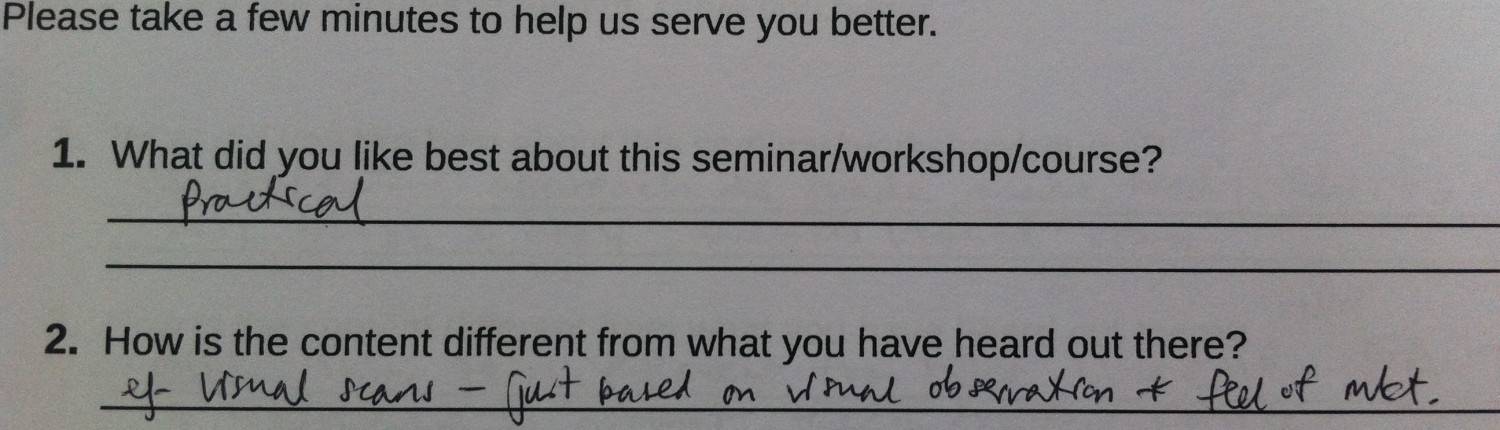 Please take a few minutes to help us serve you better.
1. What did you like best about this seminar/workshop/course?
Practical
2. How is the content different from what you have heard out there?
eg- visual scans - (just based on visual observation & feel of mkt.